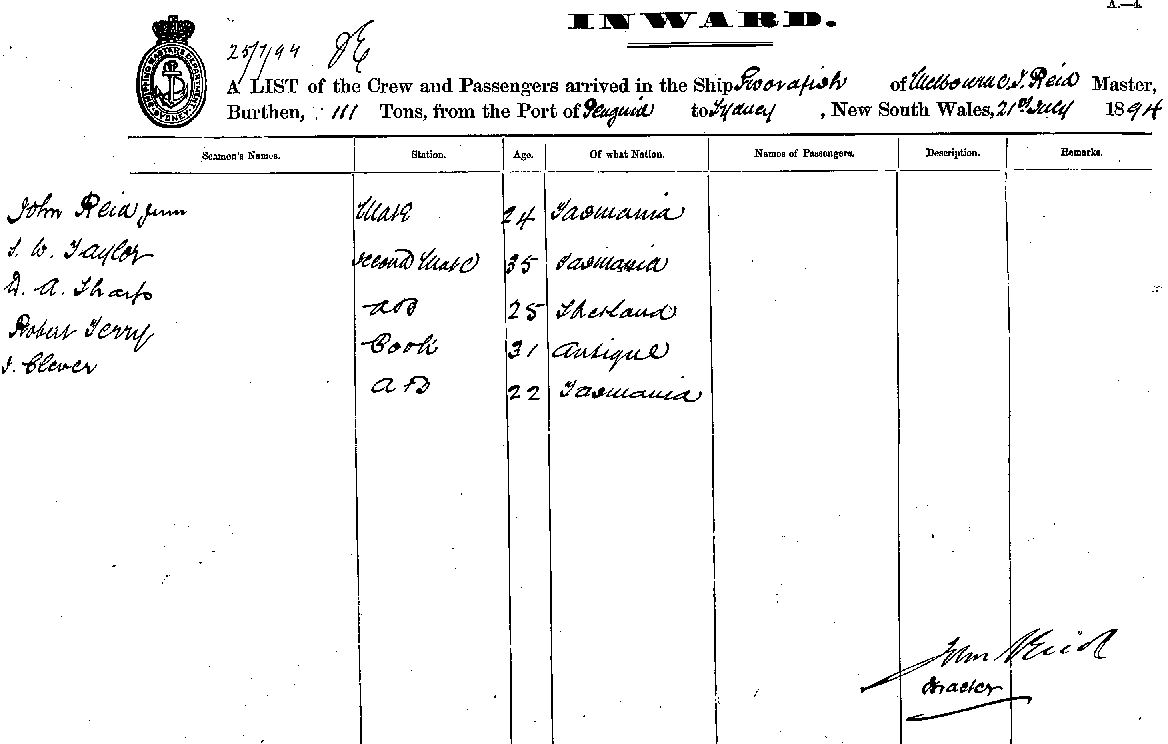 A.—4.
INWARD.
25/7/94
A LIST of the Crew and Passengers arrived in the Ship of Melbourne, J. Reid Master,
Burthen, 111 Tons, from the Port of Penguin to Sydney, New South Wales, 21st July 1894
Seamen's Names. Station. Age. Of what Nation. Names of Passengers. Description. Remarks.
John Reid Junr Mate 24 Tasmania
J. W. Taylor Second Mate 35 Tasmania
A. Sharp AB 25 Shetland
Robert Terry Cook 31 Antigue
J. Clever AB 22 Tasmania
John Reid
Master